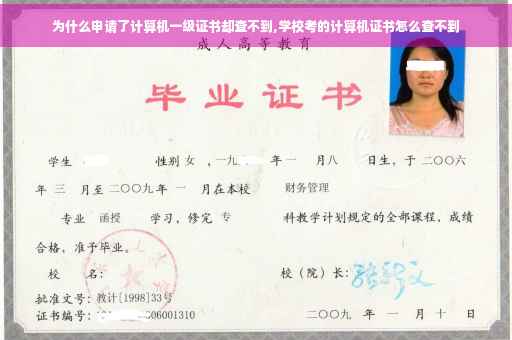 为什么申请了计算机一级证书却查不到,学校考的计算机证书怎么查不到
成人高等教育
毕业证书
学生 性别 女 ，一九 年一 月八 日生，于二〇〇六
年 三 月至二〇〇九年 一 月在本校 财务管理
专业 函授 学习，修完 专 科教学计划规定的全部课程，成绩
合格，准予毕业。
校 名： 校（院）长：
批准文号：教计[1998]33号
证书编号： 06001310 二〇〇九 年 一 月 十 日